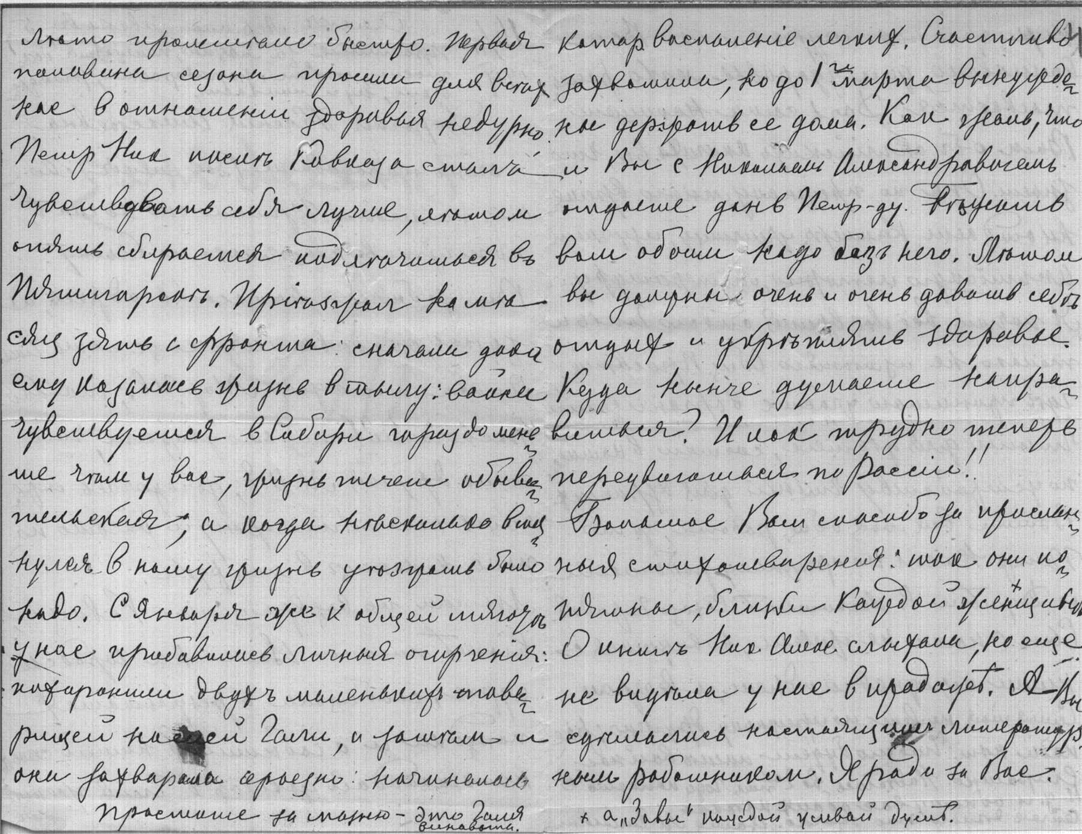 Лѣто пролетѣло быстро. Первая
половина сезона прошла для всѣхъ
нас в отношеніи здоровья недурно.
Петр Ник послѣ Кавказа сталъ
чувствовать себя лучше, лѣтом
опять сбирается подлѣчиться въ
Пятигорскъ. Пріѣзжал на мѣ-
сяц зять с фронта: сначала дока
ему казалась жизнь в тылу: война
чувствуется в Сибири гораздо мень-
ше чѣм у вас, жизнь течет обыва-
тельская, а когда нѣсколько втя-
нулся в нашу жизнь уѣзжать было
надо. С Января же к общей тяготѣ
у нас прибавились личныя огорченія:
похоронили двух маленьких това-
рищей нашей Гали, и затѣм и
она захворала серьезно: начиналось
Простите за мазню - это Галя
виновата.
катар воспаленіе легких. Счастливо
захватили, но до 1го марта вынужде-
ны держать ее дома. Как жаль, что
и Вы с Николаем Александровичем
отдаете дань Петр-ду.
вам обоим надо без него. Лѣтом
вы должны очень и очень давать себѣ
отдых и укрѣплять здоровье.
Куда нынче думаете напра-
виться? И как трудно теперь
передвигаться по Россіи!!
Большое Вам спасибо за прислан-
ныя стихотворенія: так они по-
нятны, близки каждой женщинѣ х
О книгѣ Ник Алек. слыхала, но еще
не видала у нас в продажѣ. А Вы
сдѣлались настоящим литератур-
ным работником. Я рада за Вас.
х а „Завѣт" каждой живой душѣ.